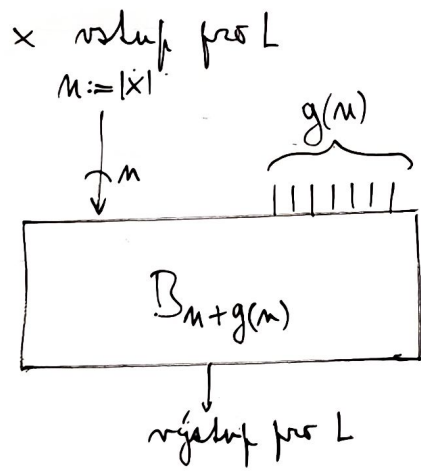 x vstup pro L
n:=|x|
g(n)
n
B_{n+g(n)}
výstup pro L